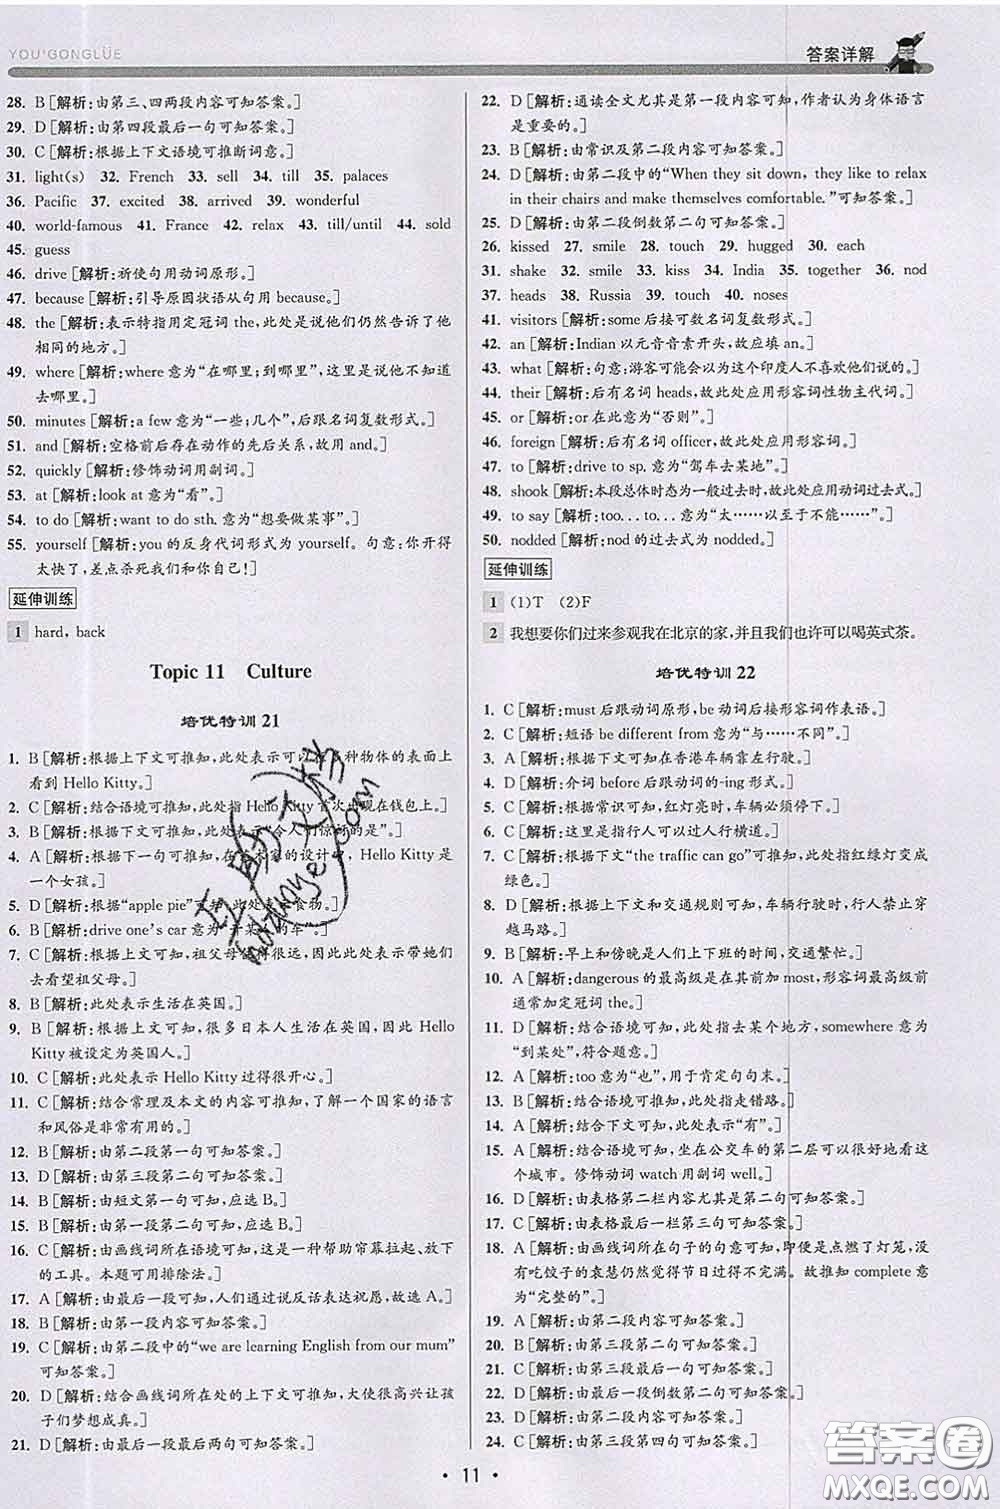 YOU'GONGLÜE
答案详解
28. B [解析:由第三、四两段内容可知答案。]
29. D [解析:由第四段最后一句可知答案。]
30. C [解析:根据上下文语境可推断词意。]
31. light(s) 32. French 33. sell 34. till 35. palaces
36. Pacific 37. excited 38. arrived 39. wonderful
40. world-famous 41. France 42. relax 43. till/until 44. sold
45. guess
46. drive [解析:祈使句用动词原形。]
47. because [解析:引导原因状语从句用 because。]
48. the [解析:表示特指用定冠词 the,此处是说他们仍然告诉了他
相同的地方。]
49. where [解析:where 意为“在哪里;到哪里”,此处是说他不知道
去哪里。]
50. minutes [解析:a few 意为“一些;几个”,后跟名词复数形式。]
51. and [解析:空格前后存在动作的先后关系,故用 and。]
52. quickly [解析:修饰动词用副词。]
53. at [解析:look at 意为“看”。]
54. to do [解析:want to do sth. 意为“想要做某事”。]
55. yourself [解析:you 的反身代词形式为 yourself。句意:你开得
太快了,差点杀死我们和你自己!]
延伸训练
1 hard, back
Topic 11 Culture
培优特训 21
1. B [解析:根据上下文可推知,此处表示可以在各种物体的表面上
看到 Hello Kitty。]
2. C [解析:结合语境可推知,此处指 Hello Kitty 首次出现在钱包上。]
3. C [解析:根据下文可推知,此处表示“令人们惊讶的是”。]
4. A [解析:根据下一句可推知,在艺术家的设计中,Hello Kitty 是
一个女孩。]
5. D [解析:根据“apple pie”可知,此处表示食物。]
6. B [解析:drive one's car 意为“开某人的车”。]
7. C [解析:根据上文可知,祖父母住得很远,因此此处表示带她们
去看望祖父母。]
8. B [解析:此处表示生活在英国。]
9. B [解析:根据上文可知,很多日本人生活在英国,因此 Hello
Kitty 被设定为英国人。]
10. C [解析:此处表示 Hello Kitty 过得很开心。]
11. C [解析:结合常理及本文的内容可推知,了解一个国家的语言
和风俗是非常有用的。]
12. B [解析:由第二段第一句可知答案。]
13. D [解析:由第三段第二句可知答案。]
14. B [解析:由短文第一句可知,应选 B。]
15. B [解析:由第一段第二句可知答案。]
16. C [解析:由画线词所在语境可知,这是一种帮助帘幕拉起、放下
的工具。本题可用排除法。]
17. A [解析:由最后一段可知,人们通过说反话表达祝愿,故选 A。]
18. B [解析:由第一段内容可知答案。]
19. C [解析:由第二段中的“we are learning English from our mum”
可知答案。]
20. D [解析:结合画线词所在处的上下文可推知,大使很高兴让孩
子们梦想成真。]
21. D [解析:由最后一段最后两句可知答案。]
22. D [解析:通读全文尤其是第一段内容可知,作者认为身体语言
是重要的。]
23. B [解析:由常识及第二段内容可知答案。]
24. D [解析:由第二段中的“When they sit down, they like to relax
in their chairs and make themselves comfortable.”可知答案。]
25. D [解析:由第二段倒数第二句可知答案。]
26. kissed 27. smile 28. touch 29. hugged 30. each
31. shake 32. smile 33. kiss 34. India 35. together 36. nod
37. heads 38. Russia 39. touch 40. noses
41. visitors [解析:some 后接可数名词复数形式。]
42. an [解析:Indian 以元音音素开头,故应填 an。]
43. what [解析:句意:游客可能会以为这个印度人不喜欢他说的话。]
44. their [解析:后有名词 heads,故此处应用形容词性物主代词。]
45. or [解析:or 在此意为“否则”。]
46. foreign [解析:后有名词 officer,故此处应用形容词。]
47. to [解析:drive to sp. 意为“驾车去某地”。]
48. shook [解析:本段总体时态为一般过去时,故此处应用动词过去式。]
49. to say [解析:too. . . to. . . 意为“太……以至于不能……”。]
50. nodded [解析:nod 的过去式为 nodded。]
延伸训练
1 (1)T (2)F
2 我想要你们过来参观我在北京的家,并且我们也许可以喝英式茶。
培优特训 22
1. C [解析:must 后跟动词原形,be 动词后接形容词作表语。]
2. C [解析:短语 be different from 意为“与……不同”。]
3. A [解析:根据下文可推知在香港车辆靠左行驶。]
4. D [解析:介词 before 后跟动词的-ing 形式。]
5. C [解析:根据常识可知,红灯亮时,车辆必须停下。]
6. C [解析:这里是指行人可以过人行横道。]
7. C [解析:根据下文“the traffic can go”可推知,此处指红绿灯变成
绿色。]
8. D [解析:根据上下文和交通规则可知,车辆行驶时,行人禁止穿
越马路。]
9. B [解析:早上和傍晚是人们上下班的时间,交通繁忙。]
10. A [解析:dangerous 的最高级是在其前加 most,形容词最高级前
通常加定冠词 the。]
11. D [解析:结合语境可知,此处指去某个地方,somewhere 意为
“到某处”,符合题意。]
12. A [解析:too 意为“也”,用于肯定句句末。]
13. B [解析:结合语境可推知,此处指走错路。]
14. C [解析:结合下文可推知,此处表示“有”。]
15. A [解析:结合语境可推知,坐在公交车的第二层可以很好地看
这个城市。修饰动词 watch 用副词 well。]
16. D [解析:由表格第二栏内容尤其是第一句可知答案。]
17. C [解析:由表格最后一栏第三句可知答案。]
18. A [解析:由画线词所在句子的句意可知,即便是点燃了灯笼,没
有吃饺子的袁慧仍然觉得节日过得不完满。故推知 complete 意
为“完整的”。]
19. A [解析:由第二段内容可知答案。]
20. D [解析:由第三段第二句可知答案。]
21. C [解析:由第三段最后一句可知答案。]
22. D [解析:由最后一段倒数第二句可知答案。]
23. D [解析:由第二段第二句可知答案。]
24. C [解析:由第三段第四句可知答案。]
· 11 ·
答案圈
MXQE.COM